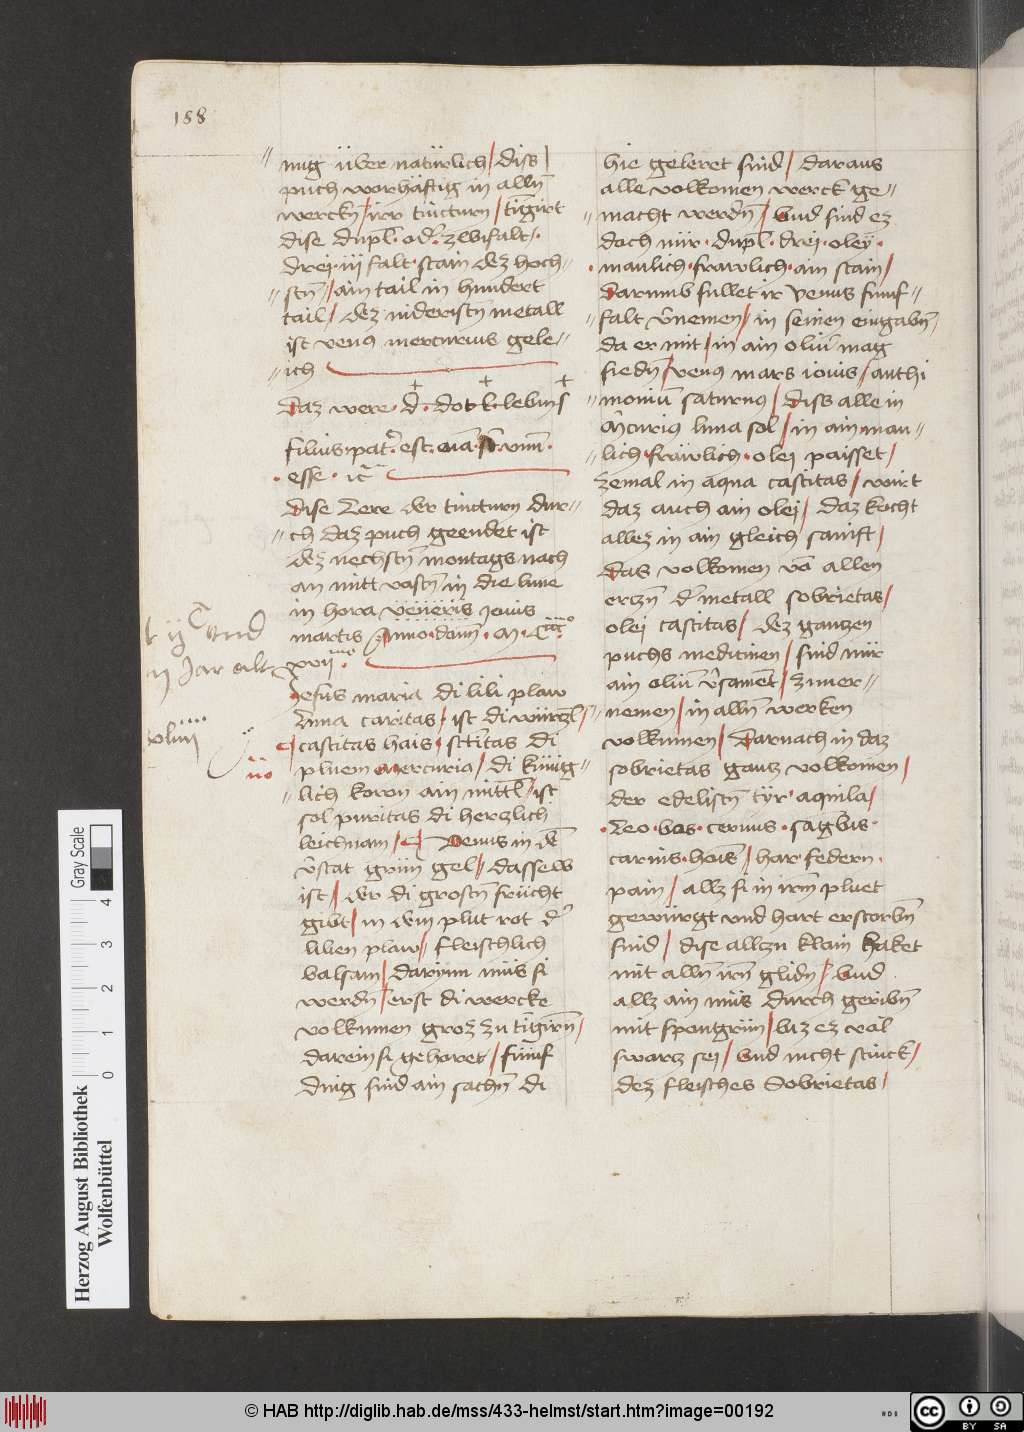 188
nug über natürlich / diss /
puch worhäftig in alln̄
werckn̄ / irr tincturn / tīgirt
dise dupl̄. od̓. zwifalt /.
drei iij falt stain dez hoch=
stn̄ / ain tail in hundert
tail / dez nideristn̄ metall
ist venꝯ mercurius gele=
ich
daz were . d̄ . dot l. lebun s
filius pat̓. est. oīa. vnūm.
esse . ic̄
dise Lere der tincturn dur=
ch daz puch geendet ist
dez nechstn̄ montags nach
an mitt vastn̄ in die lune
in hora veneris jouis
martis Anno . dom̄ . M . CCCCo
xvijmo.
Jesus maria di lili plaw
Anna caritas / ist di würczl /
castitas hais / sctītas di
pluem mercuriꝯ / di künig=
lich koron ain mittl̄ / ist
sol puritas di herczlich
leichnam / Venus in dē
v̓stat grün gel / dasselb
ist / der di grostn̄ frücht
gibt / in dem plut rot d̓
lilien plaw / fleischlich
balsam / dar jnn müs si
werdn̄ / erst di wercke
volkumen groz zu tīgirn̄ /
darein si gehöret / fünf
ding sind ain sachn̄ di
hie geleret sind / daraus
alle volkomen werck ge=
macht werdn̄ / Vnd sind ez
doch nür . dupl̄ . drei . oley .
manlich . frawlich . ain stain /
Darumb sullet ir venus fünf=
falt v̓nemen / in seinen eingabn̄
da er mit / in ain oliū mag
siedn̄ / venꝯ mars iouis / anthi
moniū saturnꝯ / diss alle in
M̄curius luna sol / in ain man=
lich . fräwlich . olej paisset /
zemal in aqua castitas / wirt
daz auch ain olej / daz kocht
allez in ain gleich sanift /
Das volkomen vō allen
erczn̄ d̓ metall sobrietas /
olej castitas / dez gantzen
puchs medicinen / sind nür
ain oliū v̓samēt / zuuer=
nemen / in alln̄ werken
volkumen / Darnach in daz
sobrietas gantz volkomen /
der edelistn̄ tÿr aquila /
Leo . bos . ceruus . sāgbis .
carnis . hoīs / har federn .
pain / allz si in irm̄ pluet
gewürgt vnd hart erstorbn̄
sind / dise allzu klain haket
mit alln̄ irn̄ glidn̄ / Vnd
allz ain müs durch geribn̄
mit spongrün / biz ez vol
swarcz sei / Vnd nicht stinck /
dez fleisches Sobrietas /
Herzog August Bibliothek
Wolfenbüttel
Gray Scale
0 1 2 3 4
© HAB http://diglib.hab.de/mss/433-helmst/start.htm?image=00192
cc BY SA